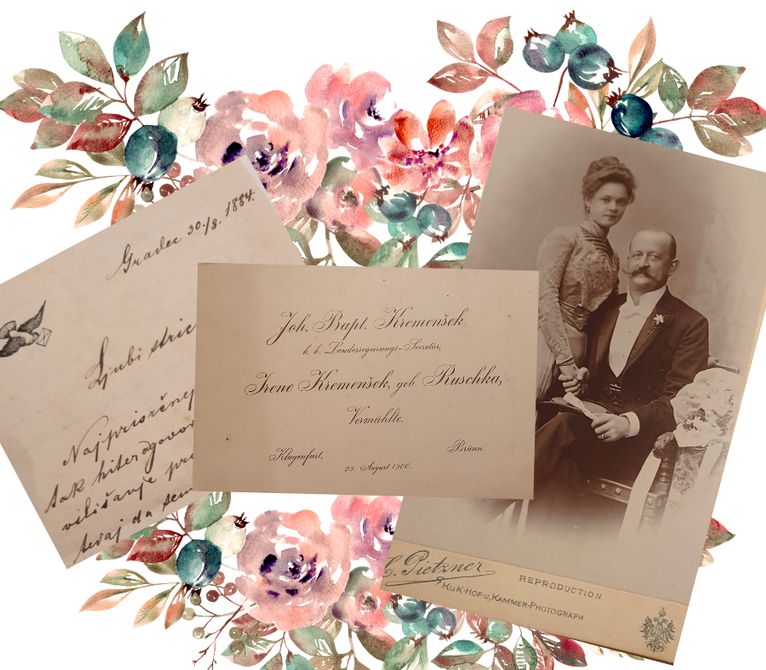 Gradec 30./8. 1884.
Ljubi stric
tak hiter odgovor
da sem
Joh. Bapt. Kremenšek
k. k. Landesregierungs-Secretär,
Irene Kremenšek, geb. Ruschka,
Vermählte.
Klagenfurt, Brünn
29. August 1900.
C. Pietzner
REPRODUCTION
K.u.K. HOF-u. KAMMER-PHOTOGRAPH